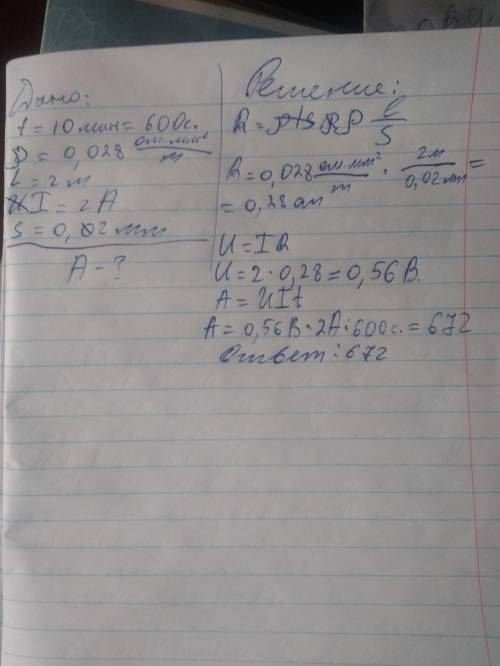 Дано:
t = 10 мин = 600с.
ρ = 0,028 ом.мм²/m
l = 2 m
I = 2 A
S = 0,02 мм
A - ?
Решение:
R = ρ l/S
R = 0,028 ом.мм²/m · 2м/0,02 мм =
= 0,28 ом
U = IR
U = 2 · 0,28 = 0,56 В.
A = UIt
A = 0,56В · 2A · 600с. = 672
Ответ: 672